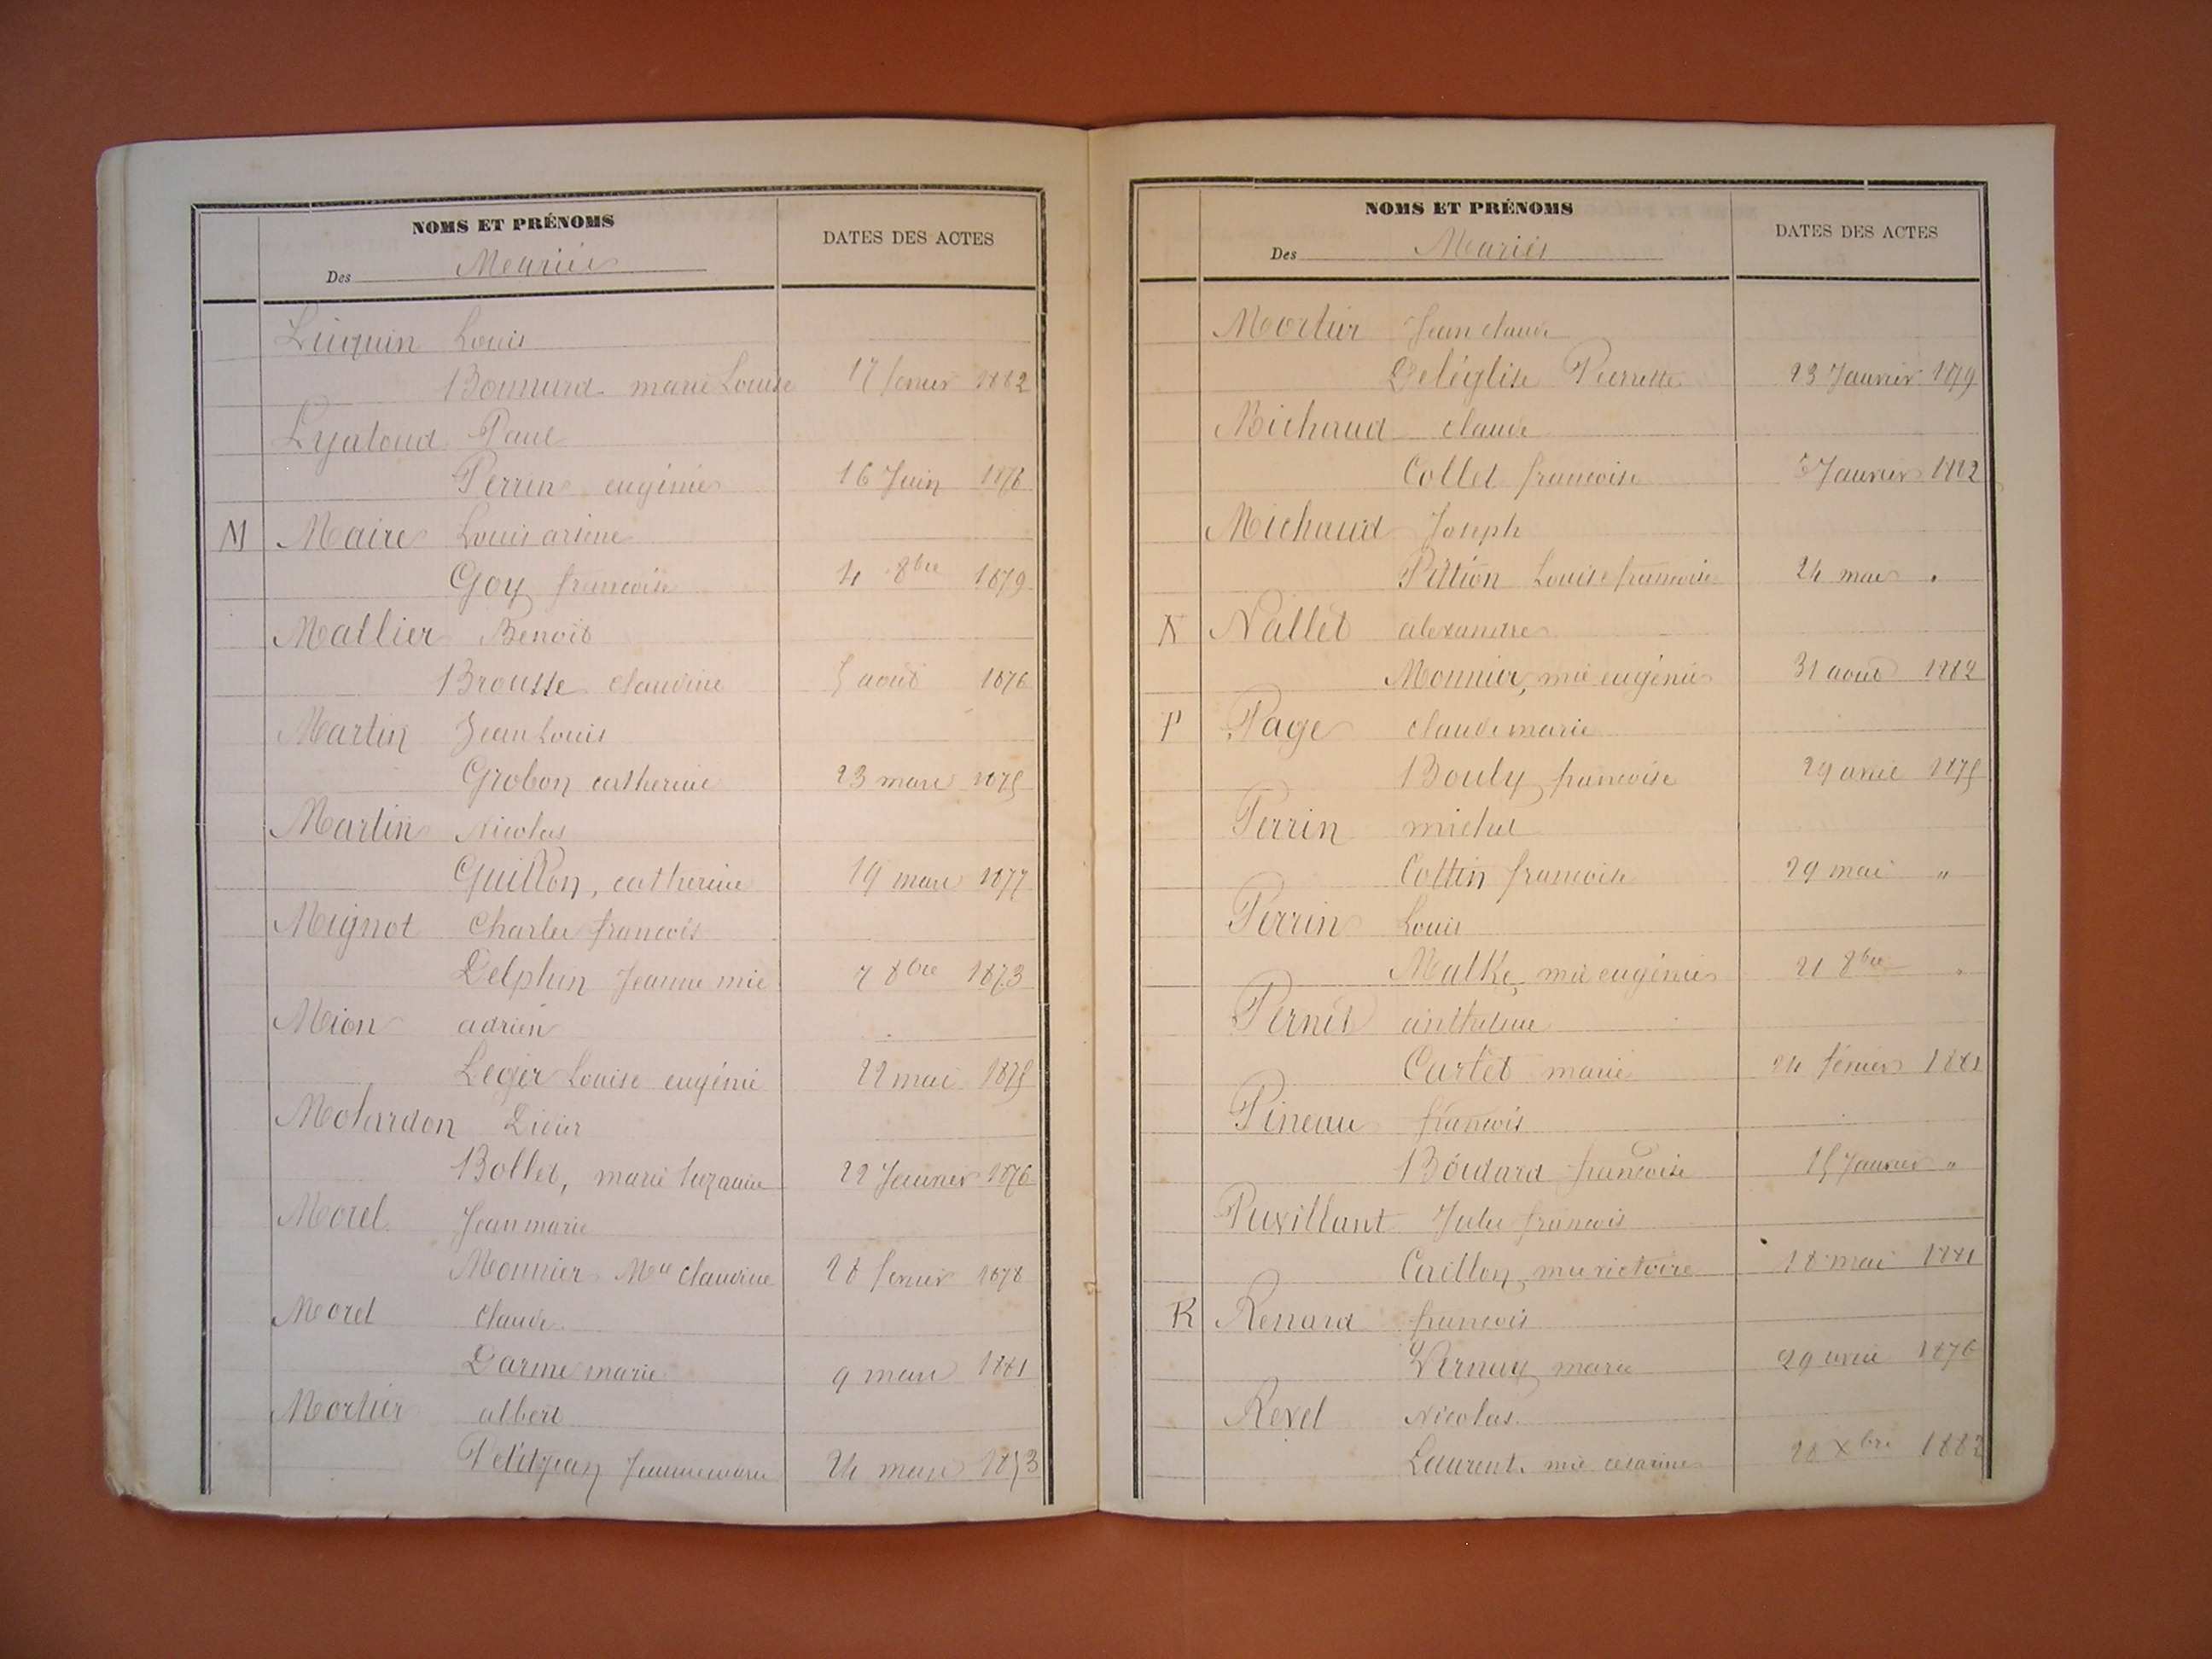 NOMS ET PRÉNOMS
Des Mariés
DATES DES ACTES
Luquin Louis
Bonnard marie Louise 17 fevrier 1882
Lyaloud Paul
Perrin eugénie 16 Juin 1876
M Maire Louis arsene
Goy francoise 4 8bre 1879
Mallier Benoit
Brousse claudine 5 aout 1876
Martin Jean Louis
Grobon catherine 23 mars 1875
Martin Nicolas
Guillon, catherine 19 mars 1877
Mignot Charles francois
Delphin Jeanne mie 7 8bre 1873
Mion adrien
Leger Louise eugénie 22 mai 1875
Molardon
Bollet, marie Suzanne 22 Janvier 1876
Morel Jean marie
Monnier Mie claudine 28 fevrier 1878
Morel claude
Darme marie 9 mars 1881
Mortier albert
Petitjean Jeanne marie 24 mars
NOMS ET PRÉNOMS
Des Mariés
DATES DES ACTES
Mortier Jean claude
Deléglise Pierrette 23 Janvier 1879
Michaud claude
Collet francoise 5 Janvier 1882
Michaud Joseph
Pittion Louise francoise 24 mars "
N Nallet alexandre
Monnier, mie eugénie 31 aout 1882
P Page claude marie
Bouly francoise 29 avril 1875
Perrin michel
Cottin francoise 29 mai "
Perrin Louis
mie eugénie 21 8bre "
Pernet anthelme
Cartet marie 24 fevrier 1881
Pineau francois
Boudard francoise 15 Janvier "
Puvillant Jules francois
Caillon mie victoire 18 mai 1881
R Renard francois
Vernay marie 29 avril 1876
Revel Nicolas
Laurent mie cesarine 28 Xbre 1882